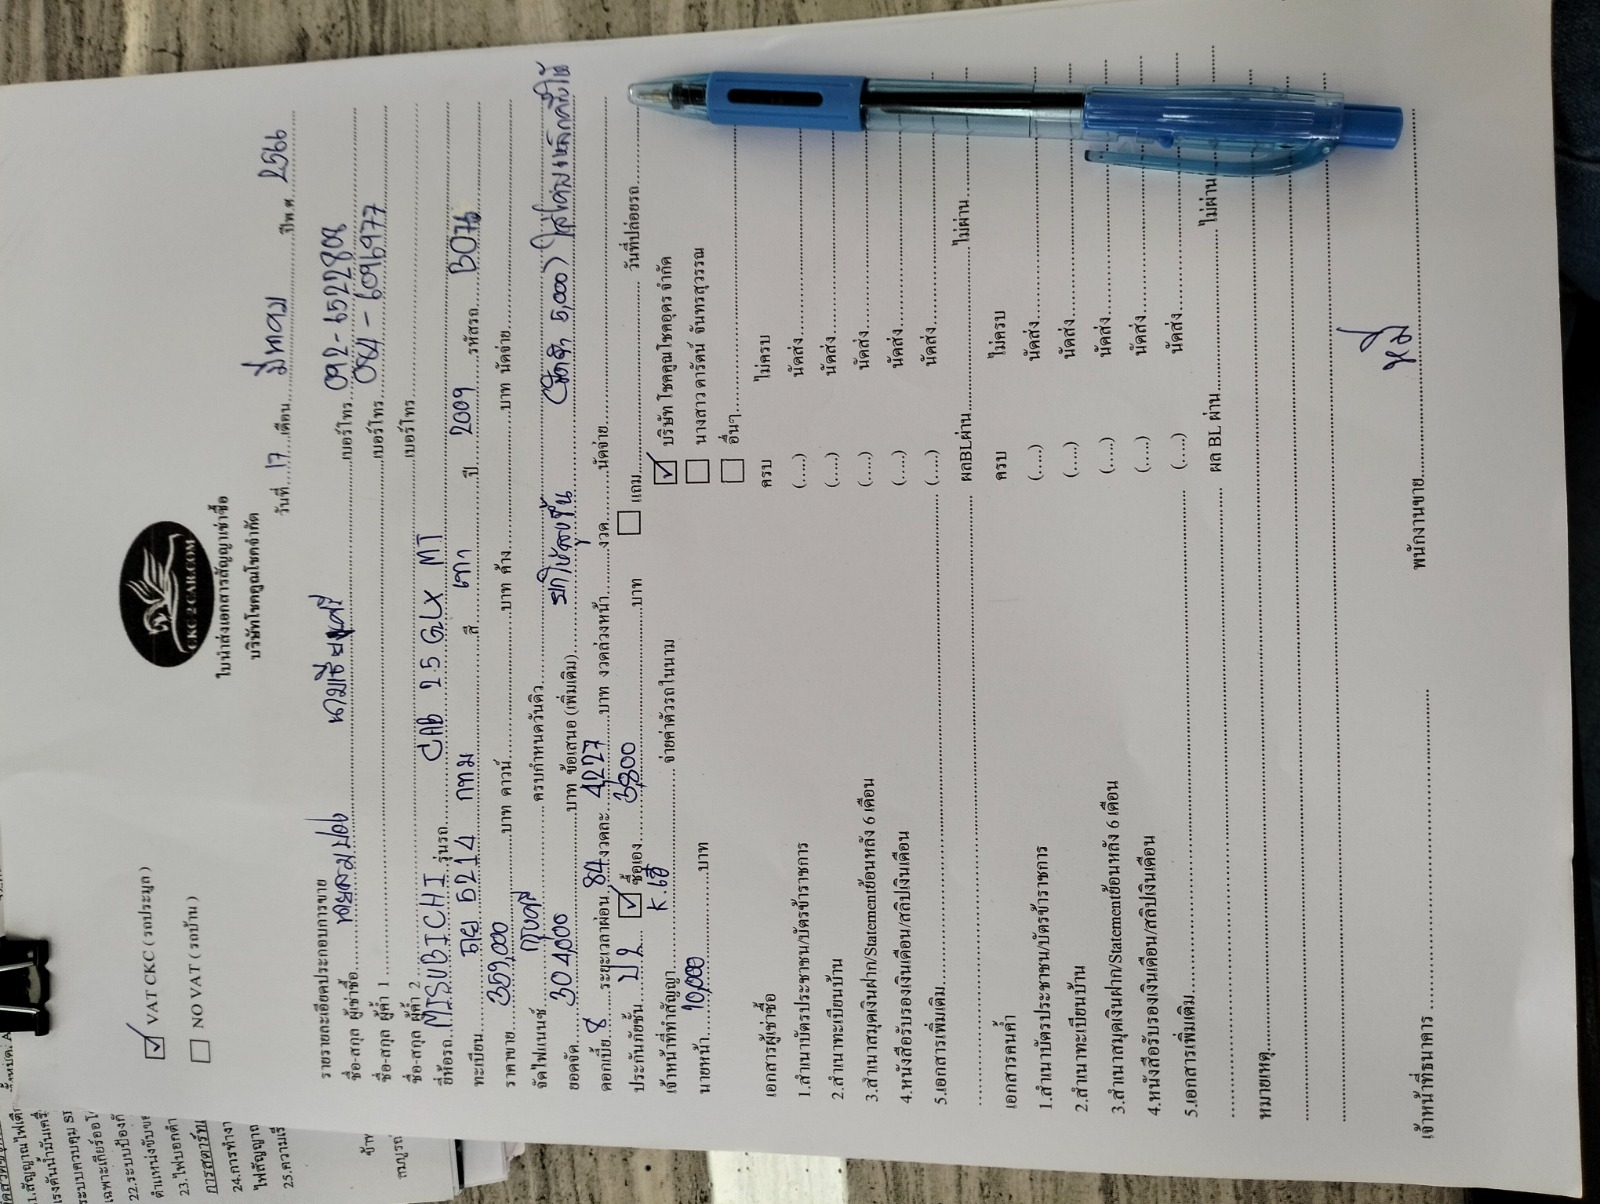 VAT CKC ( รถประมูล )
NO VAT ( รถบ้าน )
CKC-2 CAR.COM
ใบนำส่งเอกสารสัญญาเช่าซื้อ
บริษัทโชคคูณโชคจำกัด
วันที่ 17 เดือน มีนาคม ปีพ.ศ. 2566
รายรายละเอียดประกอบการขาย
ชื่อ-สกุล ผู้เช่าซื้อ เบอร์โทร 092-6522808
ชื่อ-สกุล ผู้ค้ำ 1 เบอร์โทร 084-6096977
ชื่อ-สกุล ผู้ค้ำ 2 เบอร์โทร
ยี่ห้อรถ MITSUBICHI รุ่นรถ CAB 2.5 GLX MT
ทะเบียน 5214 กทม สี เทา ปี 2009 รหัสรถ B076
ราคาขาย 359,000 บาท ดาวน์ บาท ค้าง บาท นัดจ่าย
จัดไฟแนนซ์ กรุงศรี ครบกำหนดวันคิว
ยอดจัด 304,000 บาท ข้อเสนอ (เพิ่มเติม)
ดอกเบี้ย 8 ระยะเวลาผ่อน 84 งวดละ 4227 บาท งวดล่วงหน้า งวด นัดจ่าย
ประกันภัยชั้น ป2 ซื้อเอง 3,800 บาท แถม วันที่ปล่อยรถ
เจ้าหน้าที่ทำสัญญา จ่ายค่าตัวรถในนาม บริษัท โชคคูณโชคอุดร จำกัด
นายหน้า 10,000 บาท นางสาว ดารัตน์ จันทรสุวรรณ
อื่นๆ
เอกสารผู้เช่าซื้อ ครบ ไม่ครบ
1.สำเนาบัตรประชาชน/บัตรข้าราชการ (.....) นัดส่ง
2.สำเนาทะเบียนบ้าน (.....) นัดส่ง
3.สำเนาสมุดเงินฝาก/Statementย้อนหลัง 6 เดือน (.....) นัดส่ง
4.หนังสือรับรองเงินเดือน/สลิปเงินเดือน (.....) นัดส่ง
5.เอกสารเพิ่มเติม (.....) นัดส่ง
ผลBLผ่าน ไม่ผ่าน
เอกสารคนค้ำ ครบ ไม่ครบ
1.สำเนาบัตรประชาชน/บัตรข้าราชการ (.....) นัดส่ง
2.สำเนาทะเบียนบ้าน (.....) นัดส่ง
3.สำเนาสมุดเงินฝาก/Statementย้อนหลัง 6 เดือน (.....) นัดส่ง
4.หนังสือรับรองเงินเดือน/สลิปเงินเดือน (.....) นัดส่ง
5.เอกสารเพิ่มเติม (.....) นัดส่ง
ผล BL ผ่าน ไม่ผ่าน
หมายเหตุ
เจ้าหน้าที่ธนาคาร พนักงานขาย